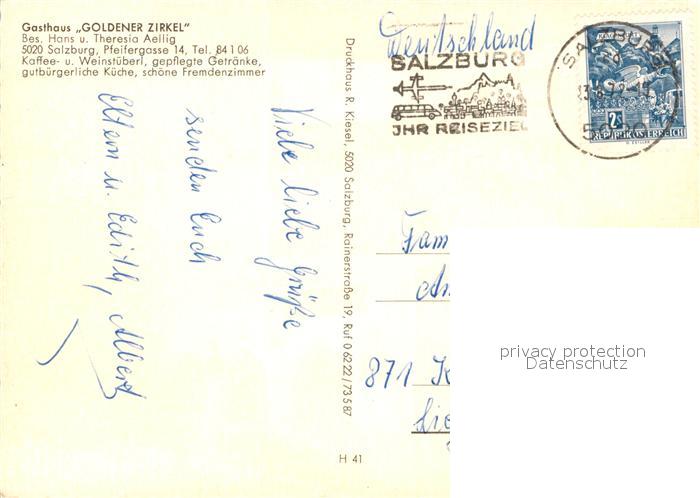 Gasthaus „GOLDENER ZIRKEL“
Bes. Hans u. Theresia Aellig
5020 Salzburg, Pfeifergasse 14, Tel. 84 1 06
Kaffee- u. Weinstüberl, gepflegte Getränke,
gutbürgerliche Küche, schöne Fremdenzimmer
Viele liebe Grüße
senden Euch
Eltern u. Edith, Albert
Druckhaus R. Kiesel, 5020 Salzburg, Rainerstraße 19, Ruf 0 62 22 / 7 35 87
H 41
Deutschland
SALZBURG
IHR REISEZIEL
SALZBURG
2 S
REPUBLIK ÖSTERREICH
Fam
871 K
privacy protection
Datenschutz